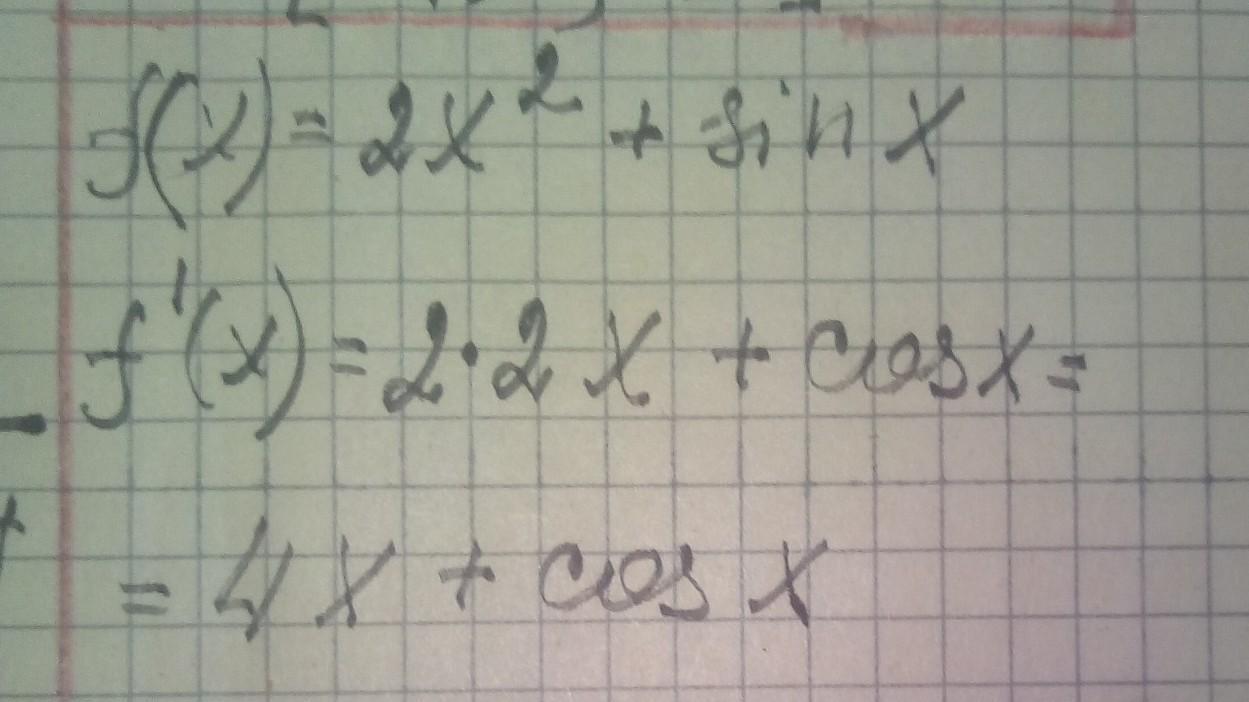 f(x) = 2x² + sin x
f'(x) = 2·2x + cos x =
= 4x + cos x